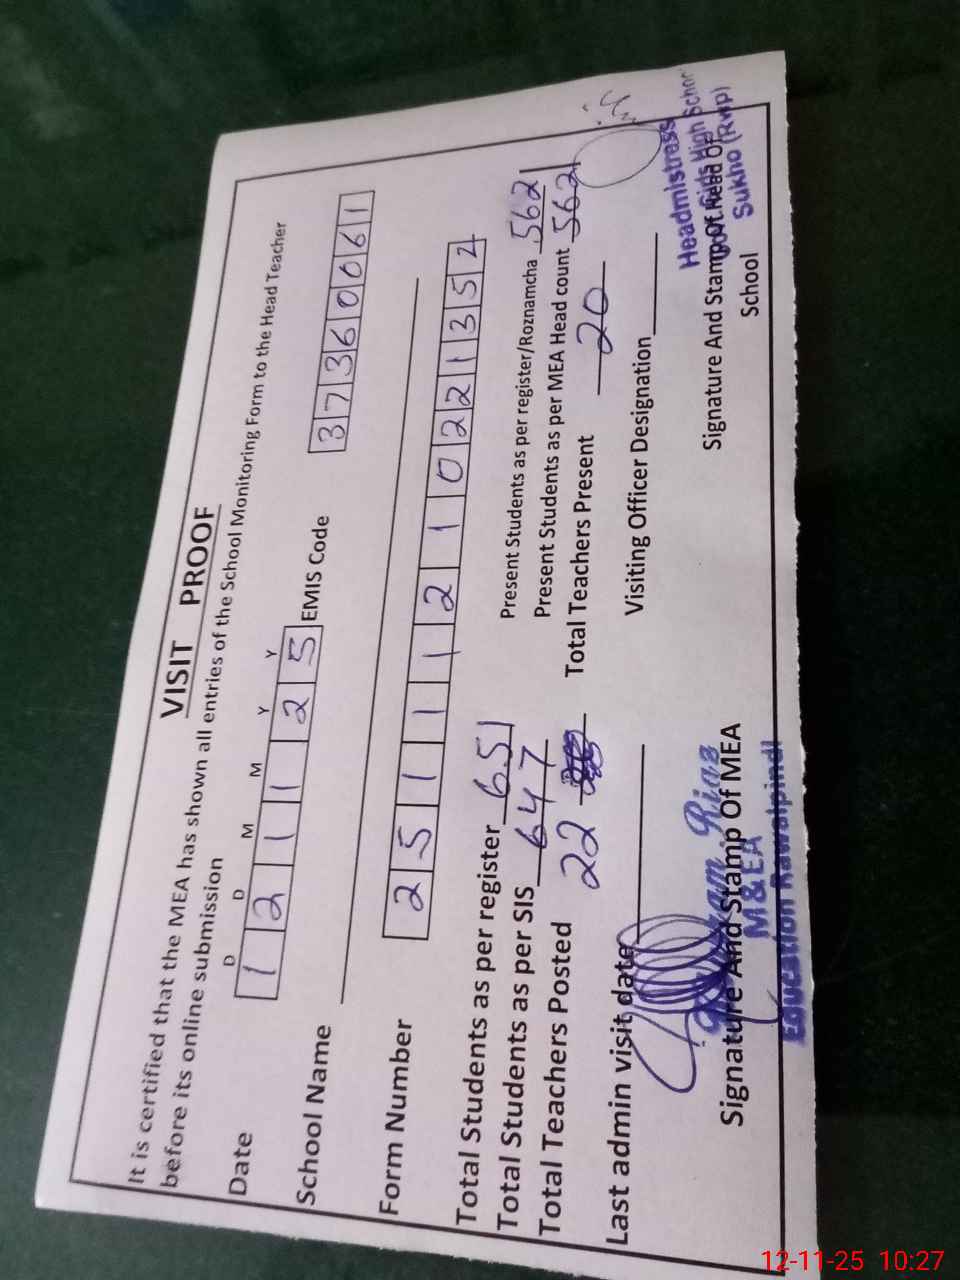 VISIT PROOF
It is certified that the MEA has shown all entries of the School Monitoring Form to the Head Teacher
before its online submission
D D M M Y Y
Date 1 2 1 1 2 5 EMIS Code 3 7 3 6 0 0 6 1
School Name
Form Number 2 5 1 1 1 2 1 0 2 2 1 3 5 2
Total Students as per register 651 Present Students as per register/Roznamcha 562
Total Students as per SIS 647 Present Students as per MEA Head count 562
Total Teachers Posted 22 Total Teachers Present 20
Last admin visit date Visiting Officer Designation
Riaz
Signature And Stamp Of MEA
M&EA
Education Rawalpindi
Headmistress
Girls High School
Signature And Stamp Of Head Of
Sukho (Rwp)
School
12-11-25 10:27